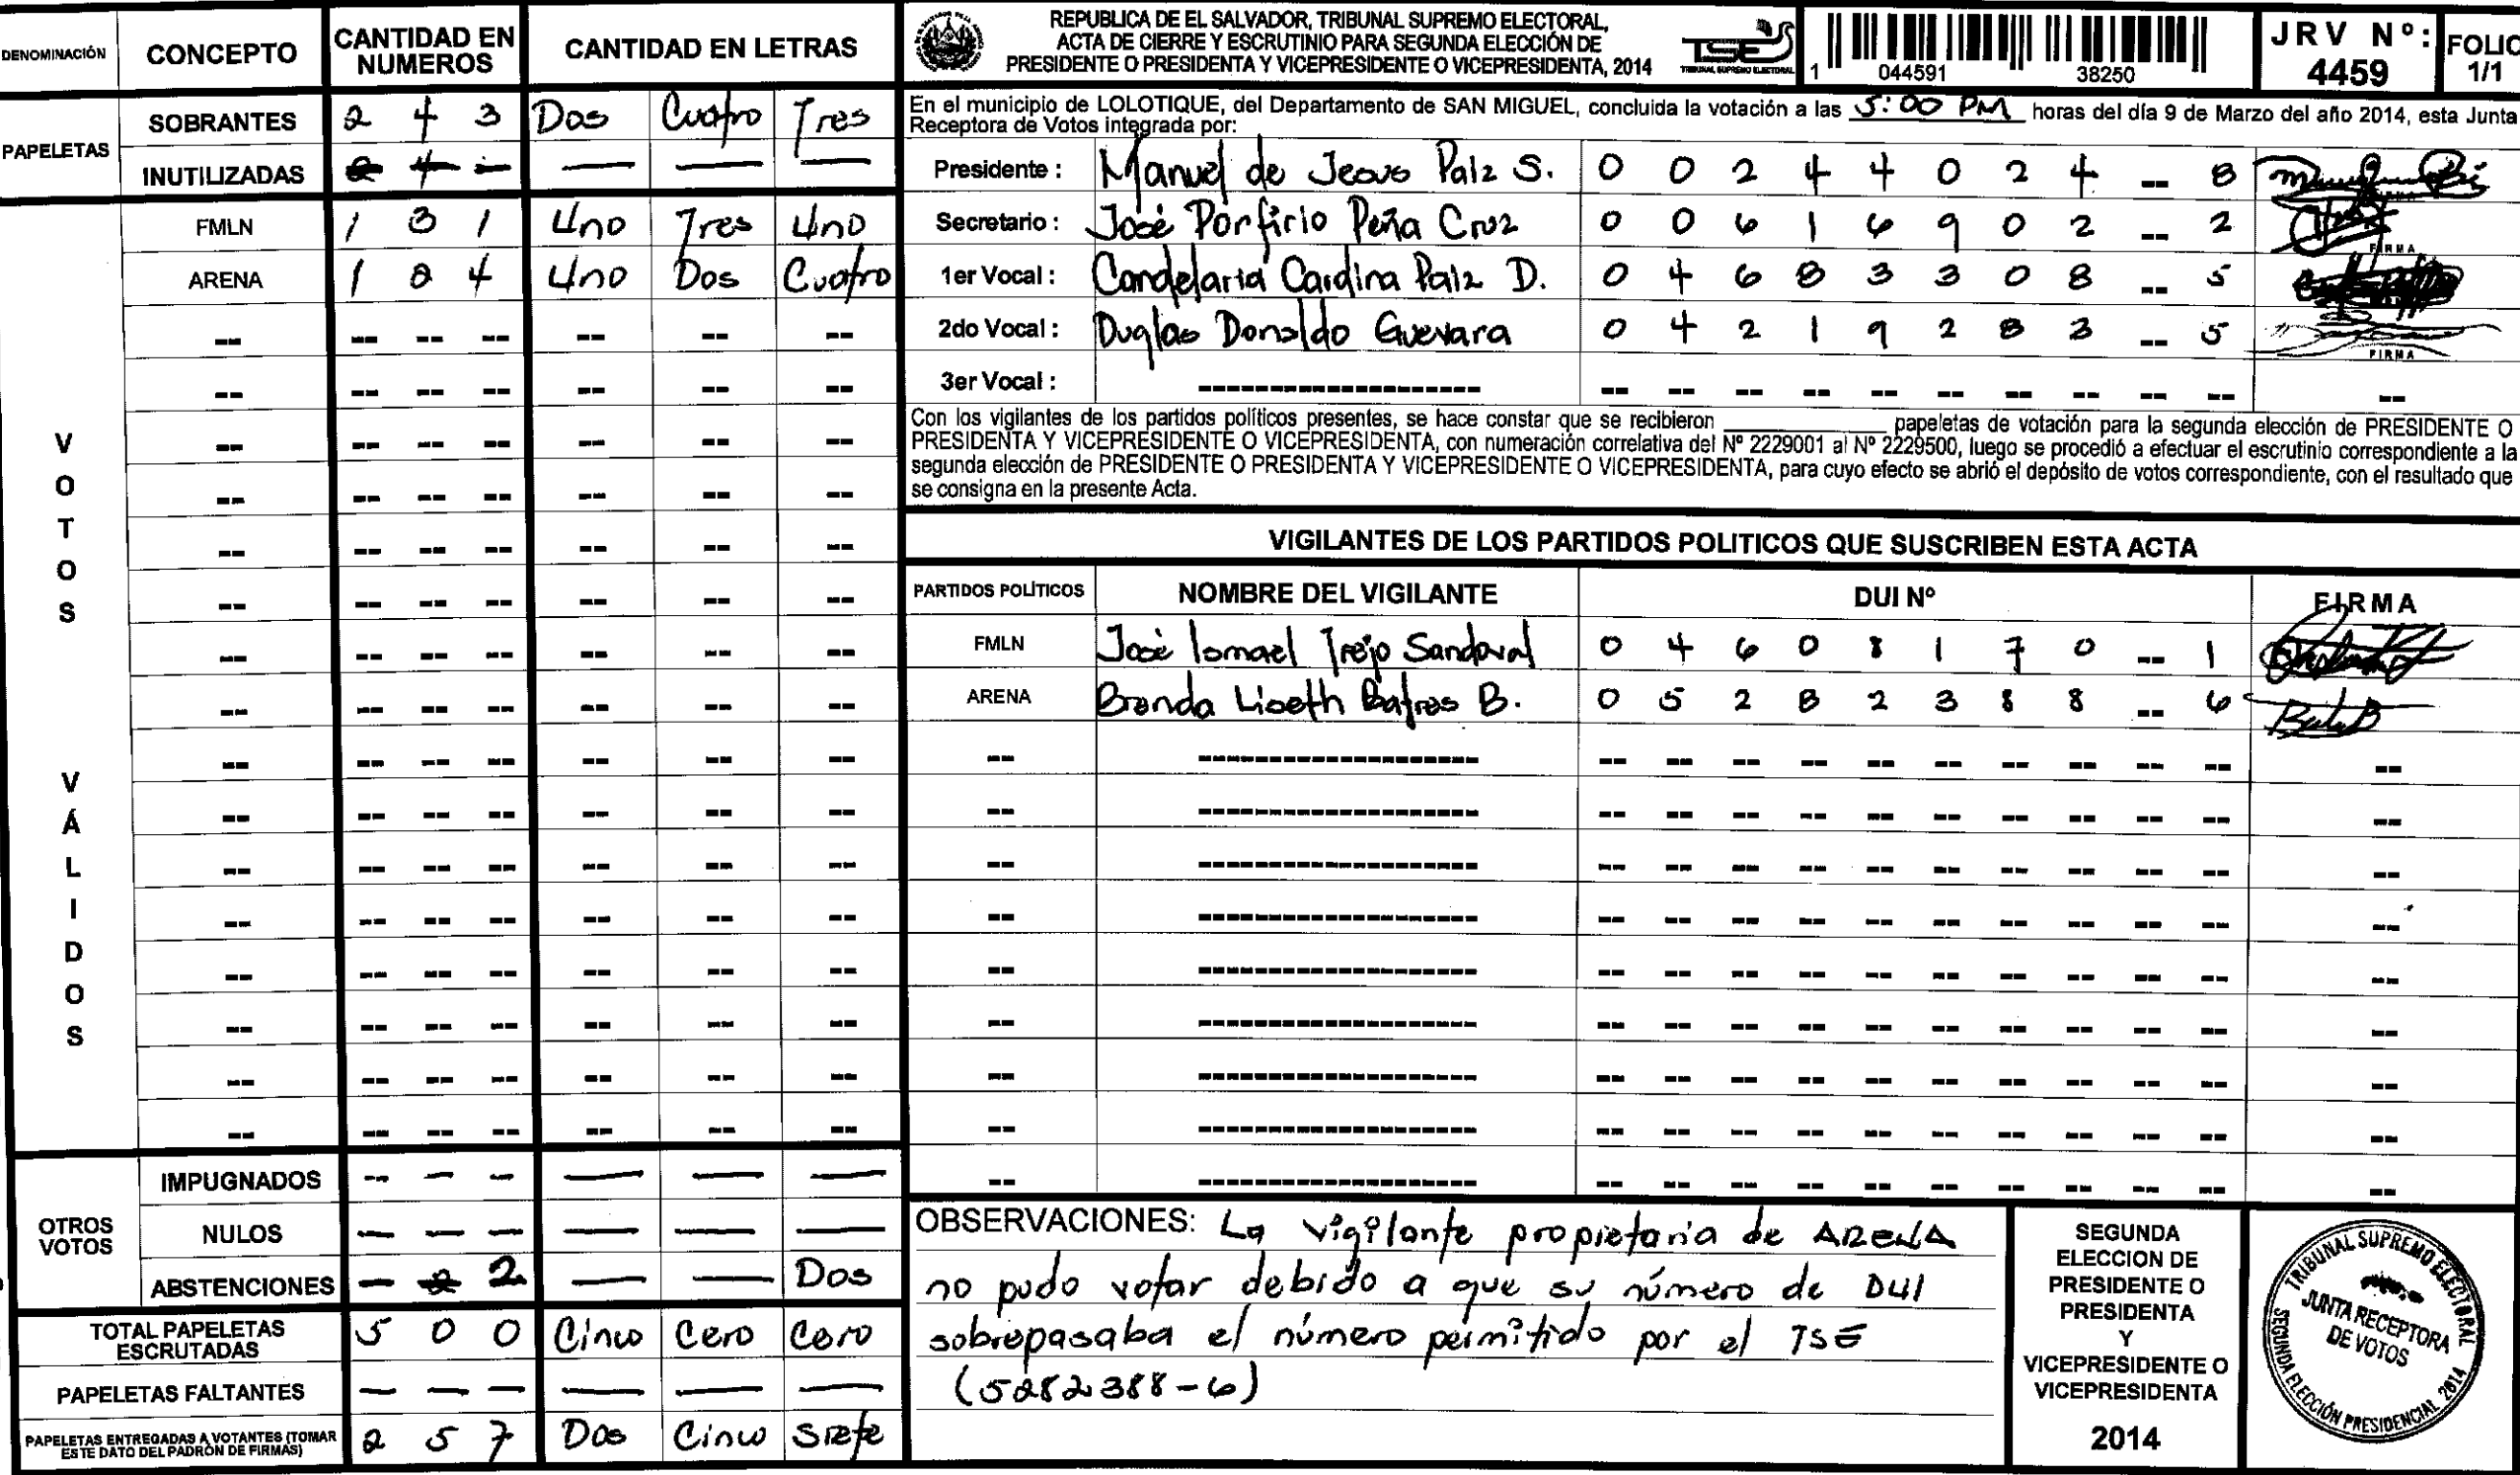 DENOMINACIÓN CONCEPTO CANTIDAD EN NUMEROS CANTIDAD EN LETRAS
PAPELETAS
SOBRANTES 2 4 3 Dos Cuatro Tres
INUTILIZADAS — — —
VOTOS VÁLIDOS
FMLN 1 3 1 Uno Tres Uno
ARENA 1 2 4 Uno Dos Cuatro
OTROS VOTOS
IMPUGNADOS -- — — — — —
NULOS — — — — — —
ABSTENCIONES — 2 2 — — Dos
TOTAL PAPELETAS ESCRUTADAS 5 0 0 Cinco Cero Cero
PAPELETAS FALTANTES — — — — — —
PAPELETAS ENTREGADAS A VOTANTES (TOMAR ESTE DATO DEL PADRÓN DE FIRMAS) 2 5 7 Dos Cinco Siete
REPUBLICA DE EL SALVADOR, TRIBUNAL SUPREMO ELECTORAL,
ACTA DE CIERRE Y ESCRUTINIO PARA SEGUNDA ELECCIÓN DE
PRESIDENTE O PRESIDENTA Y VICEPRESIDENTE O VICEPRESIDENTA, 2014
TSE
TRIBUNAL SUPREMO ELECTORAL
1 044591 38250
JRV Nº: 4459
FOLIO 1/1
En el municipio de LOLOTIQUE, del Departamento de SAN MIGUEL, concluida la votación a las 5:00 PM horas del día 9 de Marzo del año 2014, esta Junta
Receptora de Votos integrada por:
Presidente : Manuel de Jesus Paiz S. 0 0 2 4 4 0 2 4 -- 8
Secretario : José Porfirio Peña Cruz 0 0 6 1 6 9 0 2 -- 2 FIRMA
1er Vocal : Candelaria Cardina Paiz D. 0 4 6 8 3 3 0 8 -- 5
2do Vocal : Duglas Donaldo Guevara 0 4 2 1 9 2 8 3 -- 5 FIRMA
3er Vocal : -- -- -- -- -- -- -- -- -- -- --
Con los vigilantes de los partidos políticos presentes, se hace constar que se recibieron ________ papeletas de votación para la segunda elección de PRESIDENTE O
PRESIDENTA Y VICEPRESIDENTE O VICEPRESIDENTA, con numeración correlativa del Nº 2229001 al Nº 2229500, luego se procedió a efectuar el escrutinio correspondiente a la
segunda elección de PRESIDENTE O PRESIDENTA Y VICEPRESIDENTE O VICEPRESIDENTA, para cuyo efecto se abrió el depósito de votos correspondiente, con el resultado que
se consigna en la presente Acta.
VIGILANTES DE LOS PARTIDOS POLITICOS QUE SUSCRIBEN ESTA ACTA
PARTIDOS POLÍTICOS NOMBRE DEL VIGILANTE DUI Nº FIRMA
FMLN José Ismael Trejo Sandoval 0 4 6 0 8 1 7 0 -- 1
ARENA Brenda Liseth Batres B. 0 5 2 8 2 3 8 8 -- 6
OBSERVACIONES: La vigilante propietaria de ARENA
no pudo votar debido a que su número de DUI
sobrepasaba el número permitido por el TSE
(5282388-6)
SEGUNDA
ELECCION DE
PRESIDENTE O
PRESIDENTA
Y
VICEPRESIDENTE O
VICEPRESIDENTA
2014
TRIBUNAL SUPREMO ELECTORAL
JUNTA RECEPTORA
DE VOTOS
SEGUNDA ELECCIÓN PRESIDENCIAL 2014